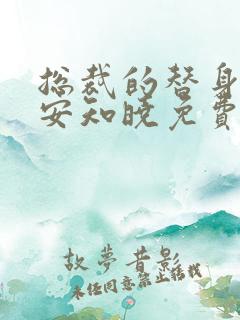 总裁的替身
安知晓免费
故梦昔影
未经同意禁止转载